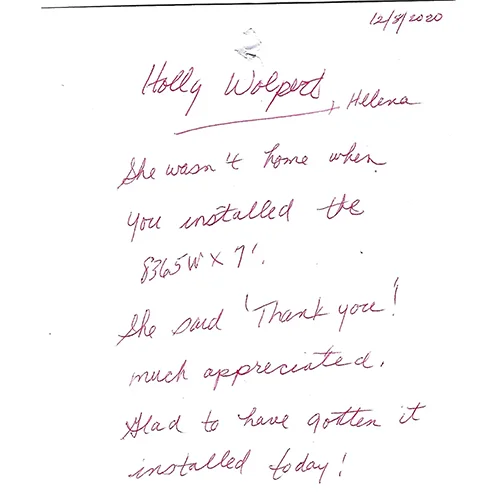 12/8/2020
Holly Wolpert, Helena
She wasn't home when
you installed the
8365W x 7'.
She said 'Thank you!
much appreciated.
Glad to have gotten it
installed today!